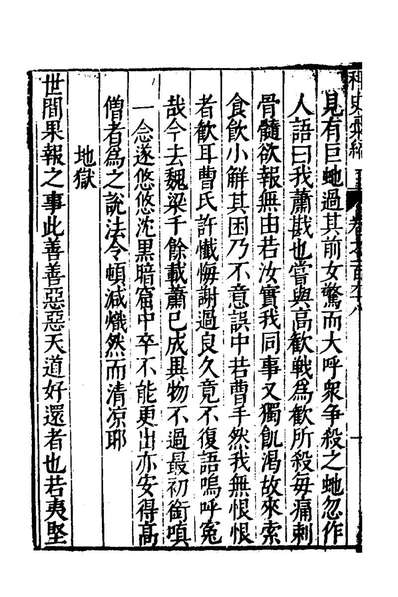 見有巨虵過其前女驚而大呼衆争殺之虵忽作
人語曰我蕭戡也嘗與高歡戰為歡所殺每痛刺
骨髓欲報無由若汝實我同事又獨飢渴故來索
食飲小解其困乃不意誤中若曹手然我無恨恨
者歡耳曹氏許懺悔謝過良久竟不復語嗚呼寃
哉今去魏梁千餘載蕭已成異物不過最初銜嗔
一念遂悠悠沈黒暗窟中卒不能更出亦安得高
僧者為之説法令頓滅熾然而清凉耶
地獄
世間果報之事此善善惡惡天道好還者也若夷堅